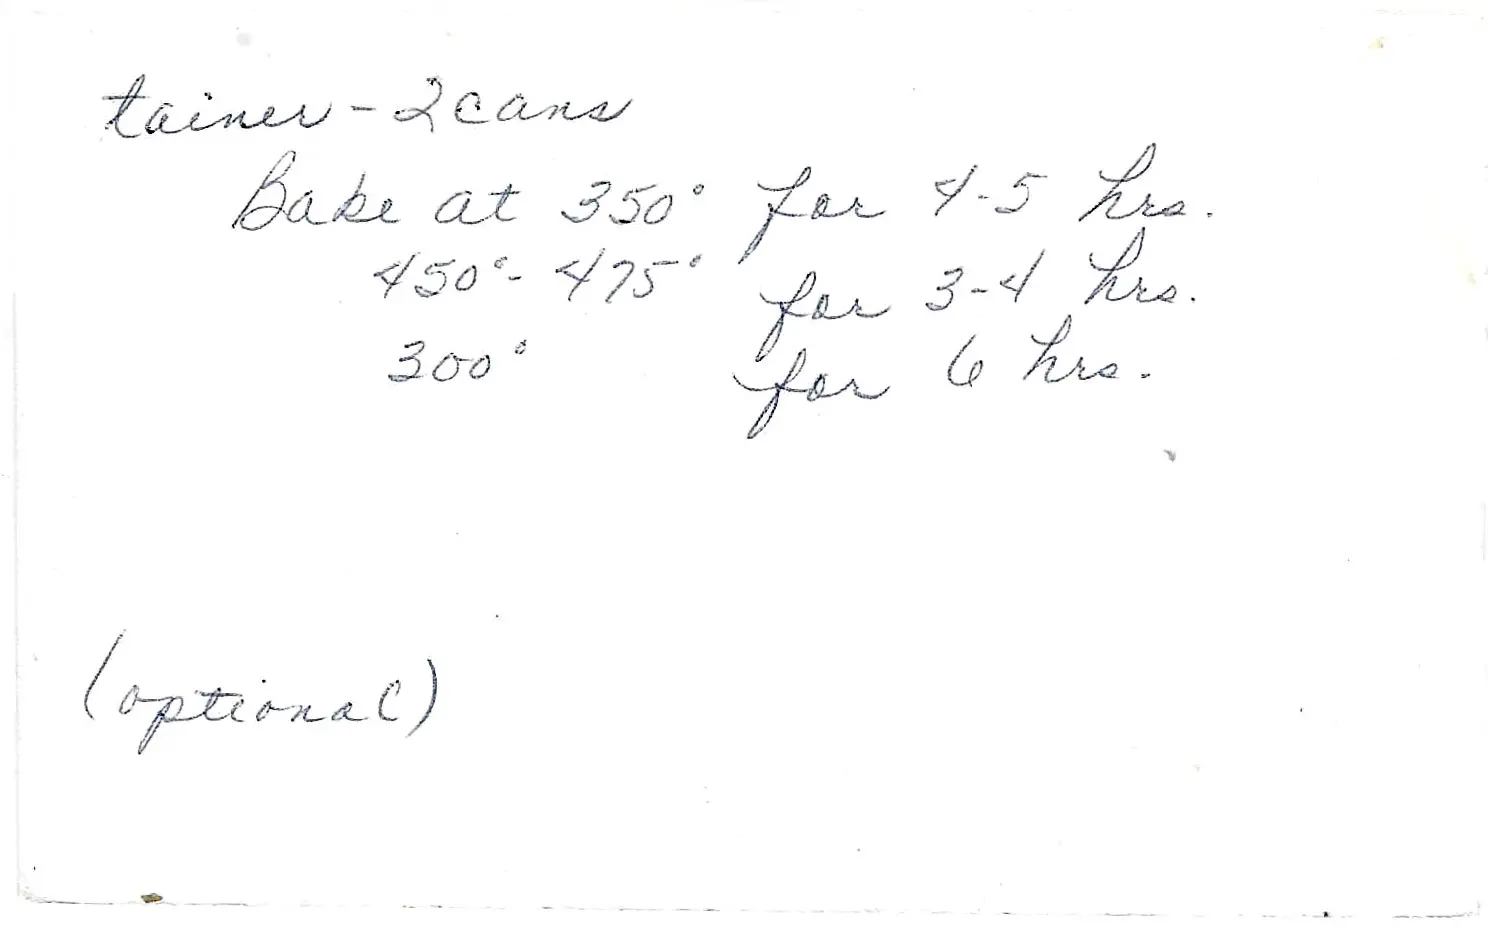 tainer - 2 cans
Bake at 350° for 4-5 hrs.
450°- 475° for 3-4 hrs.
300° for 6 hrs.
(optional)